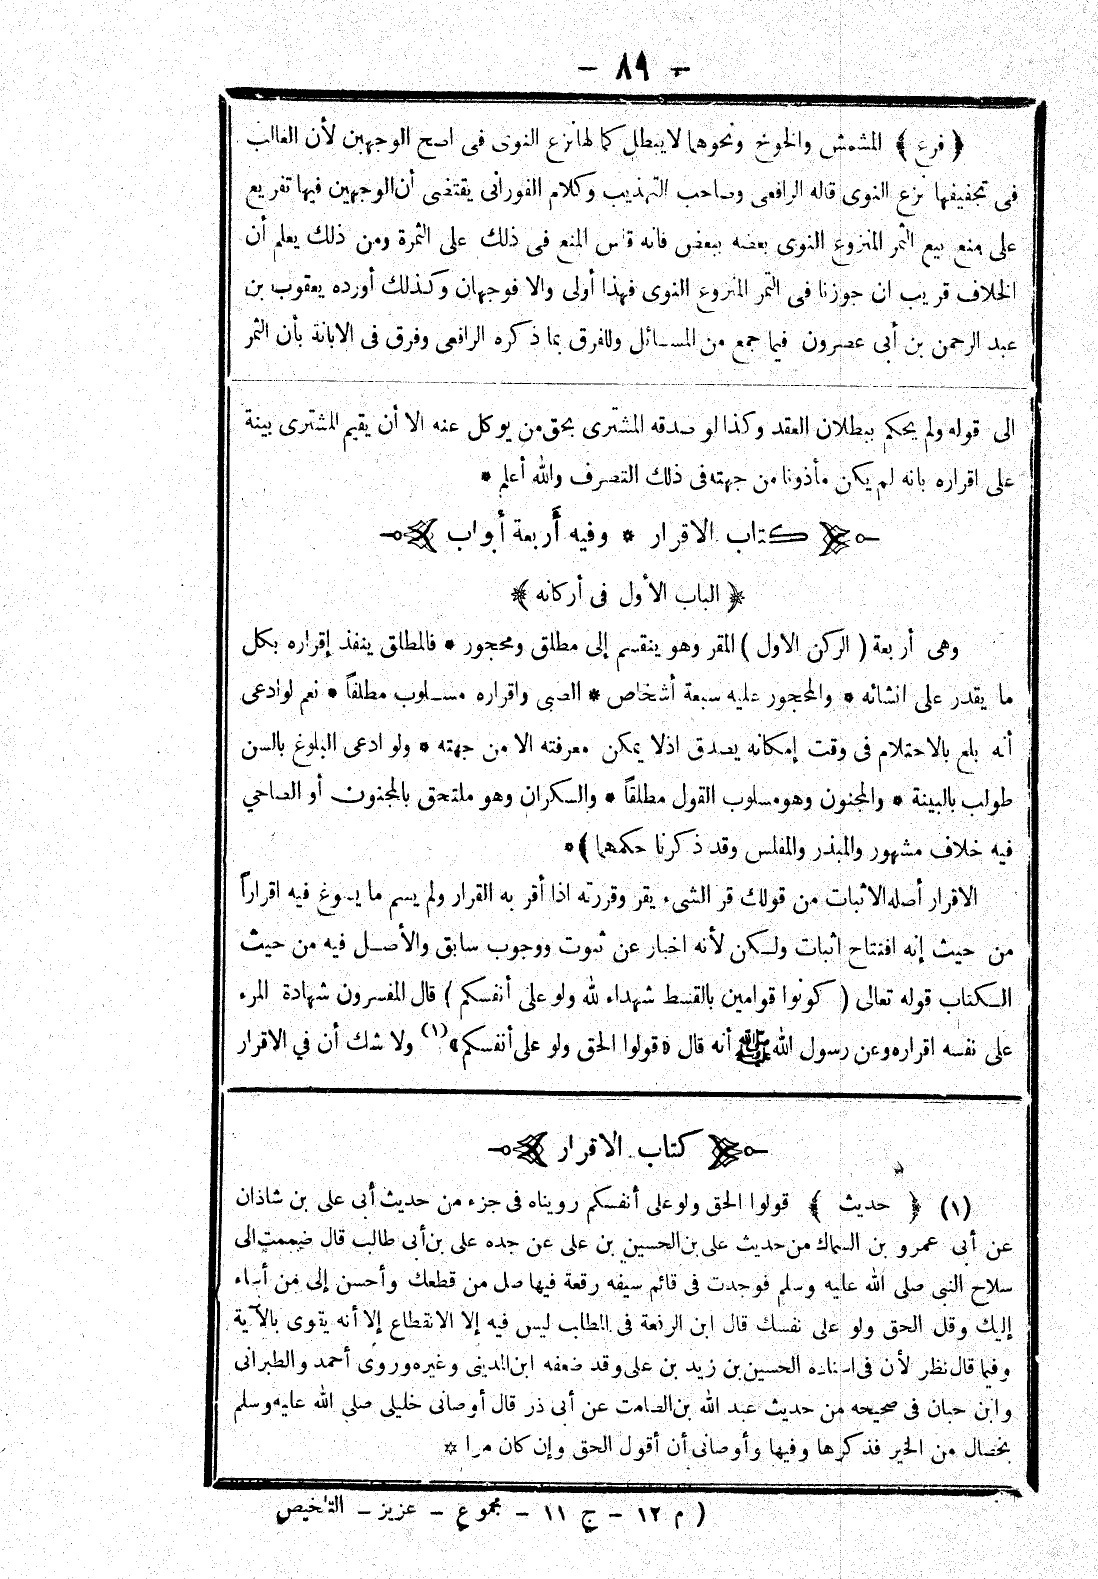 - ٨٩ -
﴿ فرع ﴾ المشمش والخوخ ونحوهما لا يبطل كمالها نزع النوى فى اصح الوجهين لأن الغالب
فى تجفيفها نزع النوى قاله الرافعى وصاحب التهذيب وكلام الفورانى يقتضى أن الوجهين فيها تفريع
على منع بيع التمر المنزوع النوى بعضه ببعض فانه قاس المنع فى ذلك على الثمرة ومن ذلك يعلم أن
الخلاف قريب ان جوزنا فى التمر المنزوع النوى فهذا أولى والا فوجهان وكذلك أورده يعقوب بن
عبد الرحمن بن أبى عصرون فيما جمع من المسائل وللفرق بما ذكره الرافعى وفرق فى الابانة بأن التمر
الى قوله ولم يحكم ببطلان العقد وكذا لو صدقه المشترى بحق من يوكل عنه الا أن يقيم المشترى بينة
على اقراره بانه لم يكن مأذونا من جهته فى ذلك التصرف والله أعلم *
كتاب الاقرار * وفيه أربعة أبواب
﴿ الباب الأول فى أركانه ﴾
وهى أربعة ( الركن الاول ) المقر وهو ينقسم إلى مطلق ومحجور * فالمطلق ينفذ إقراره بكل
ما يقدر على انشائه * والمحجور عليه سبعة أشخاص * الصبى واقراره مسلوب مطلقاً * نعم لو ادعى
أنه بلغ بالاحتلام فى وقت إمكانه يصدق اذ لا يمكن معرفته الا من جهته * ولو ادعى البلوغ بالسن
طولب بالبينة * والمجنون وهو مسلوب القول مطلقاً * والسكران وهو ملتحق بالمجنون أو الصاحي
فيه خلاف مشهور والمبذر والمفلس وقد ذكرنا حكمهما ) *
الاقرار أصله الاثبات من قولك قر الشىء يقر وقررته اذا أقر به القرار ولم يسم ما يسوغ فيه اقراراً
من حيث إنه افتتاح اثبات ولكن لأنه اخبار عن ثبوت ووجوب سابق والأصل فيه من حيث
الكتاب قوله تعالى ( كونوا قوامين بالقسط شهداء لله ولو على أنفسكم ) قال المفسرون شهادة المرء
على نفسه اقراره وعن رسول الله ﷺ أنه قال «قولوا الحق ولو على أنفسكم» (١) ولا شك أن في الاقرار
كتاب الاقرار
(١) ﴿ حديث ﴾ قولوا الحق ولو على أنفسكم رويناه فى جزء من حديث أبى على بن شاذان
عن أبى عمرو بن السماك من حديث على بن الحسين بن على عن جده على بن أبى طالب قال ضممت الى
سلاح النبى صلى الله عليه وسلم فوجدت فى قائم سيفه رقعة فيها صل من قطعك وأحسن إلى من أساء
إليك وقل الحق ولو على نفسك قال ابن الرفعة فى المطلب ليس فيه إلا الانقطاع إلا أنه يقوى بالآية
وفيما قال نظر لأن فى اسناده الحسين بن زيد بن على وقد ضعفه ابن المدينى وغيره وروى أحمد والطبرانى
وابن حبان فى صحيحه من حديث عبد الله بن الصامت عن أبى ذر قال أوصانى خليلى صلى الله عليه وسلم
بخصال من الخير فذكرها وفيها وأوصانى أن أقول الحق وإن كان مرا *
( م ١٢ - ج ١١ - مجموع - عزيز - التلخيص